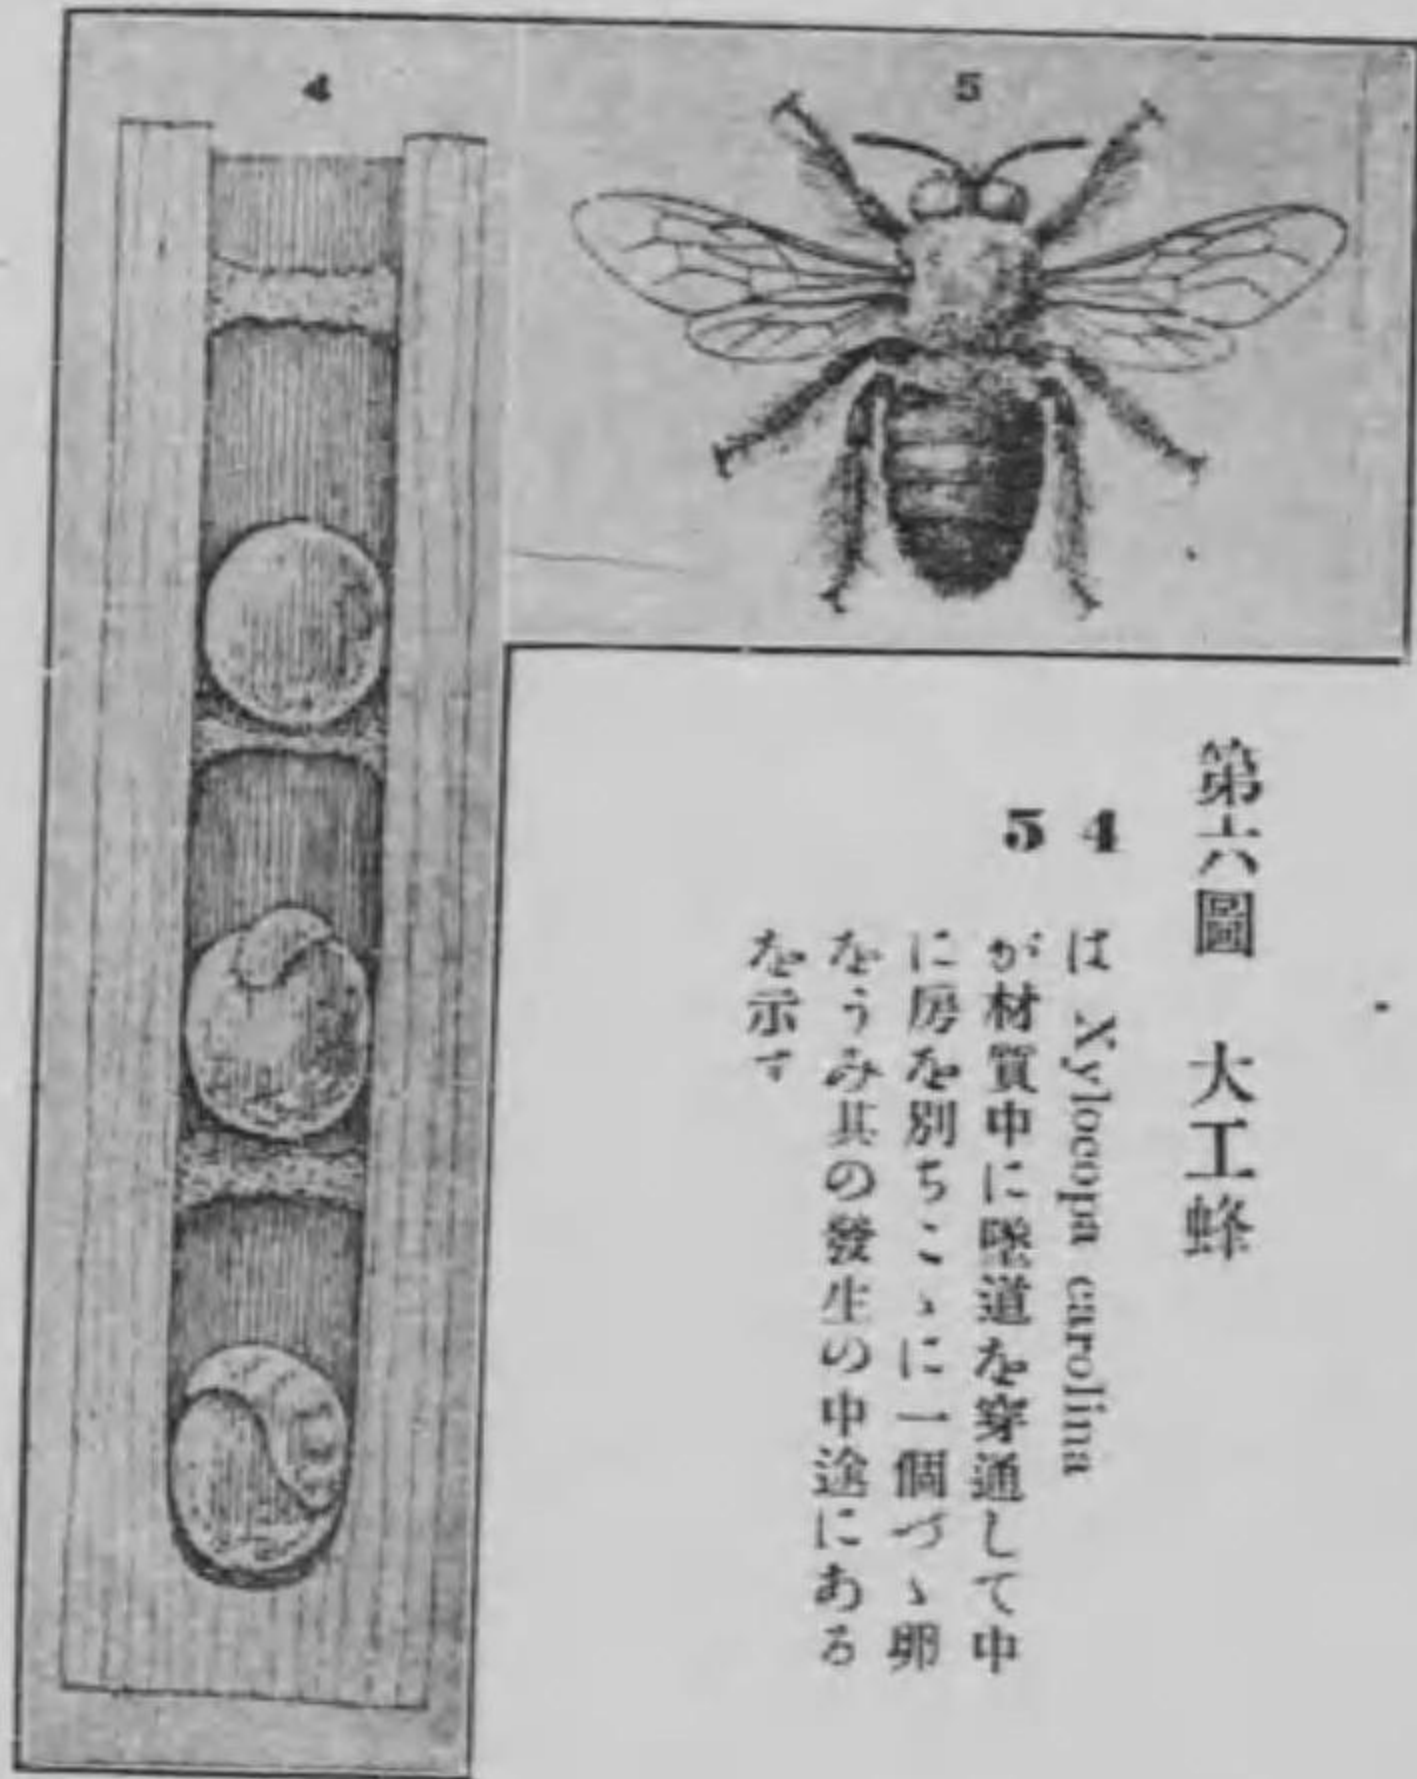 4
5
第六圖　大工蜂
4 は Xylocopa carolina
5 が材質中に墜道を穿通して中
に房を別ちこゝに一個づゝ卵
をうみ其の發生の中途にある
を示す